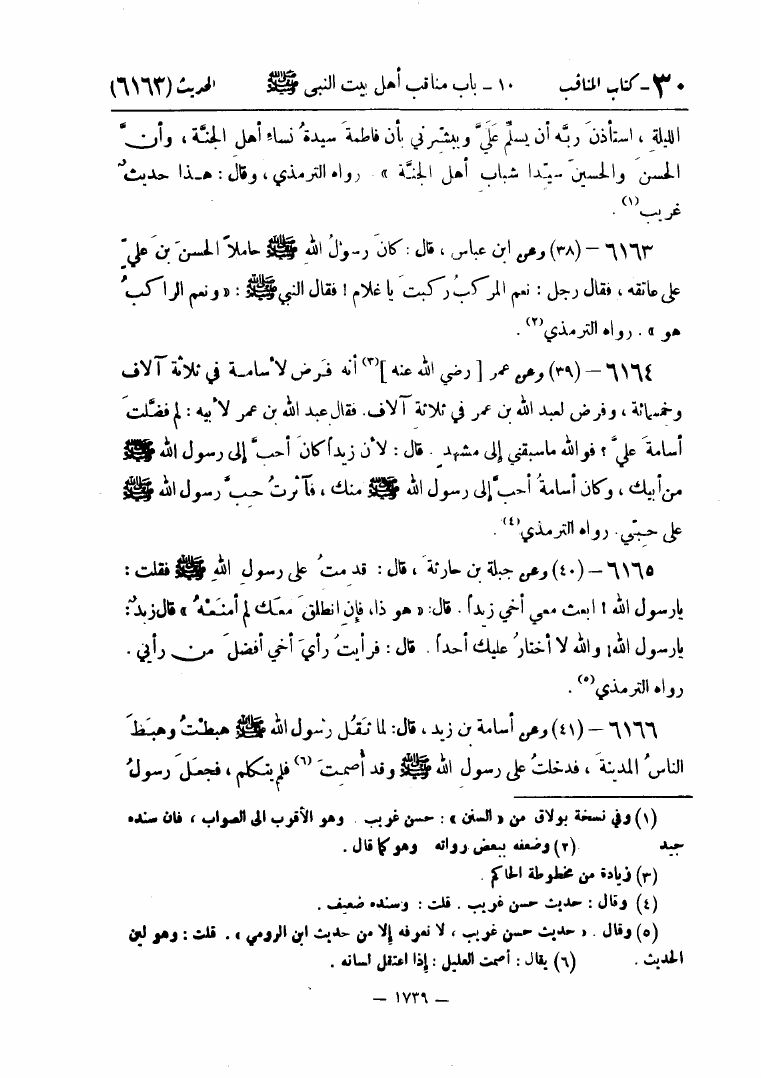 ٣٠- كتاب المناقب ١٠ - باب مناقب أهل بيت النبي ﷺ الحديث (٦١٦٣)
الليلةِ ، استأذنَ ربَّه أن يسلِّمَ عَلَيَّ ويبشِّرني بأن فاطمةَ سيدةُ نساءِ أهلِ الجنَّة ، وأنَّ
الحسنَ والحسينَ سيِّدا شبابِ أهلِ الجنَّة » . رواه الترمذي ، وقال : هـذا حديثٌ
غريب(١) .
٦١٦٣ - (٣٨) وعن ابن عباس ، قال : كانَ رسولُ اللهِ ﷺ حاملاً الحسنَ بنَ عليٍّ
على عاتقه ، فقال رجل : نعم المركبُ ركبتَ يا غلام ! فقال النبي ﷺ : « ونعم الراكبُ
هو » . رواه الترمذي(٢) .
٦١٦٤ - (٣٩) وعن عمر [ رضي الله عنه ](٣) أنه فَرض لأسامـة في ثلاثة آلاف
وخمسمائة ، وفرض لعبد الله بن عمر في ثلاثة آلاف. فقال عبد الله بن عمر لأبيه : لم فضَّلتَ
أسامةَ عليَّ ؟ فوالله ماسبقني إلى مشهدٍ . قال : لأن زيداً كانَ أحبَّ إلى رسول الله ﷺ
من أبيك ، وكان أسامةُ أحبَّ إلى رسول الله ﷺ منك ، فآثرتُ حبَّ رسول الله ﷺ
على حبّي. رواه الترمذي(٤) .
٦١٦٥ - (٤٠) وعن جبلة بن حارثةَ ، قال : قدمتُ على رسولِ اللهِ ﷺ فقلت :
يارسول الله ! ابعث معي أخي زيداً . قال: « هو ذا، فإِن انطلقَ معَك لم أمنَعْهُ » قال زيدٌ:
يارسول الله! والله لا أختارُ عليك أحداً . قال : فرأيتُ رأيَ أخي أفضلَ من رأيي .
رواه الترمذي(٥) .
٦١٦٦ - (٤١) وعن أسامة بن زيد ، قال: لما ثَقُل رسول الله ﷺ هبطْتُ وهبَطَ
الناسُ المدينةَ ، فدخلتُ على رسولِ الله ﷺ وقد أُصمِتَ(٦) فلم يتكلم ، فجعلَ رسولُ
(١) وفي نسخة بولاق من « السنن » : حسن غريب . وهو الأقرب الى الصواب ، فان سنده
جيد (٢) وضعفه ببعض رواته وهو كما قال .
(٣) زيادة من مخطوطة الحاكم .
(٤) وقال : حديث حسن غريب . قلت : وسنده ضعيف .
(٥) وقال . « حديث حسن غريب ، لا نعرفه إلا من حديث ابن الرومي » . قلت : وهو لين
الحديث . (٦) يقال : أصمت العليل : إذا اعتقل لسانه .
- ١٧٣٩ -